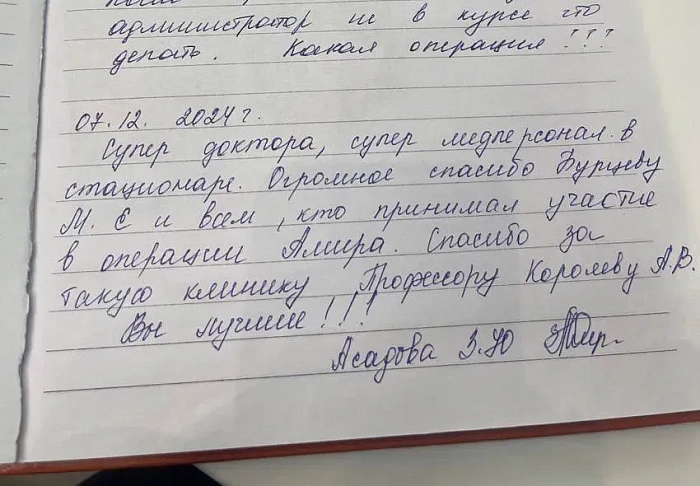 администратор не в курсе что
делать. Какая операция!!!
07.12. 2024 г.
Супер доктора, супер медперсонал в
стационаре. Огромное спасибо Бурцеву
М. Е и всем, кто принимал участие
в операции Амира. Спасибо за
такую клинику Профессору Королеву А.В.
Вы лучшие!!!
Асадова З.Ю